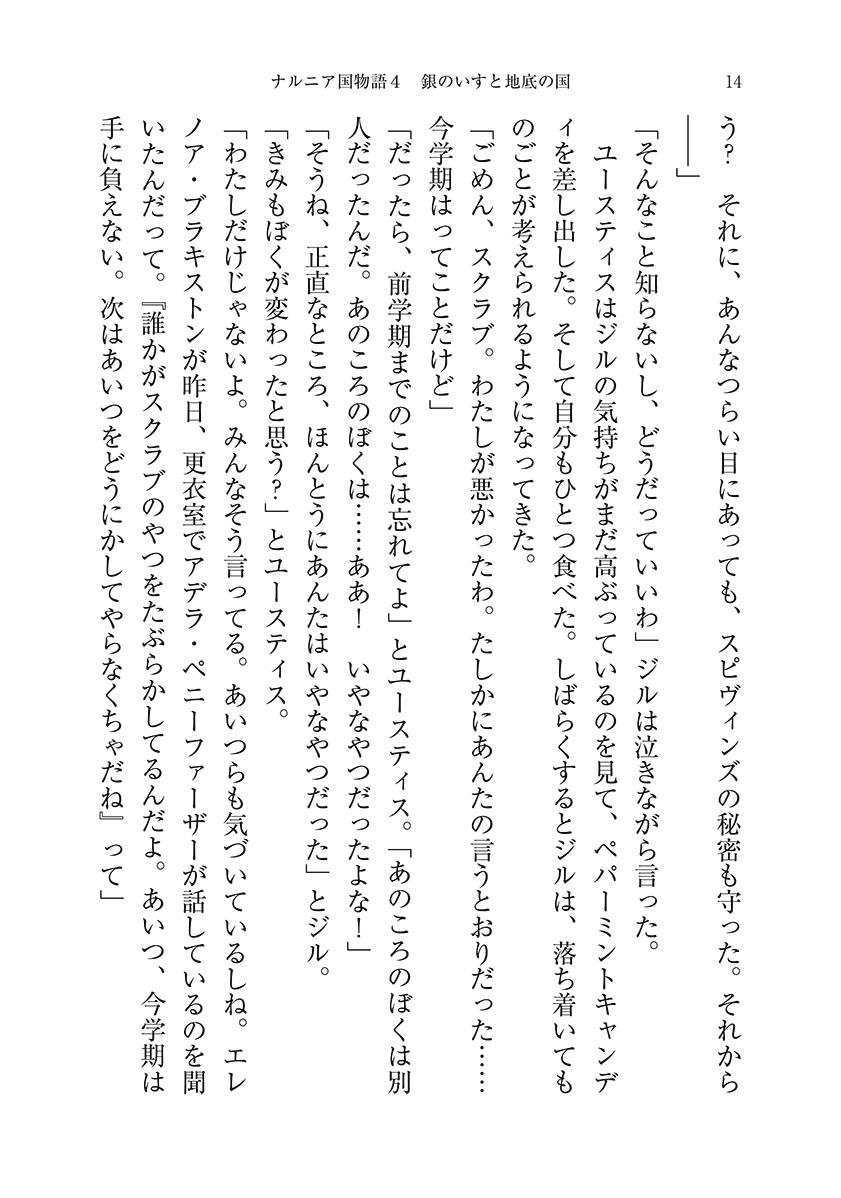 ナルニア国物語4　銀のいすと地底の国
14
う？　それに、あんなつらい目にあっても、スピヴィンズの秘密も守った。それから
――」
「そんなこと知らないし、どうだっていいわ」ジルは泣きながら言った。
　ユースティスはジルの気持ちがまだ高ぶっているのを見て、ペパーミントキャンデ
ィを差し出した。そして自分もひとつ食べた。しばらくするとジルは、落ち着いても
のごとが考えられるようになってきた。
「ごめん、スクラブ。わたしが悪かったわ。たしかにあんたの言うとおりだった……
今学期はってことだけど」
「だったら、前学期までのことは忘れてよ」とユースティス。「あのころのぼくは別
人だったんだ。あのころのぼくは……ああ！　いやなやつだったよな！」
「そうね、正直なところ、ほんとうにあんたはいやなやつだった」とジル。
「きみもぼくが変わったと思う？」とユースティス。
「わたしだけじゃないよ。みんなそう言ってる。あいつらも気づいているしね。エレ
ノア・ブラキストンが昨日、更衣室でアデラ・ペニーファーザーが話しているのを聞
いたんだって。『誰かがスクラブのやつをたぶらかしてるんだよ。あいつ、今学期は
手に負えない。次はあいつをどうにかしてやらなくちゃだね』って」